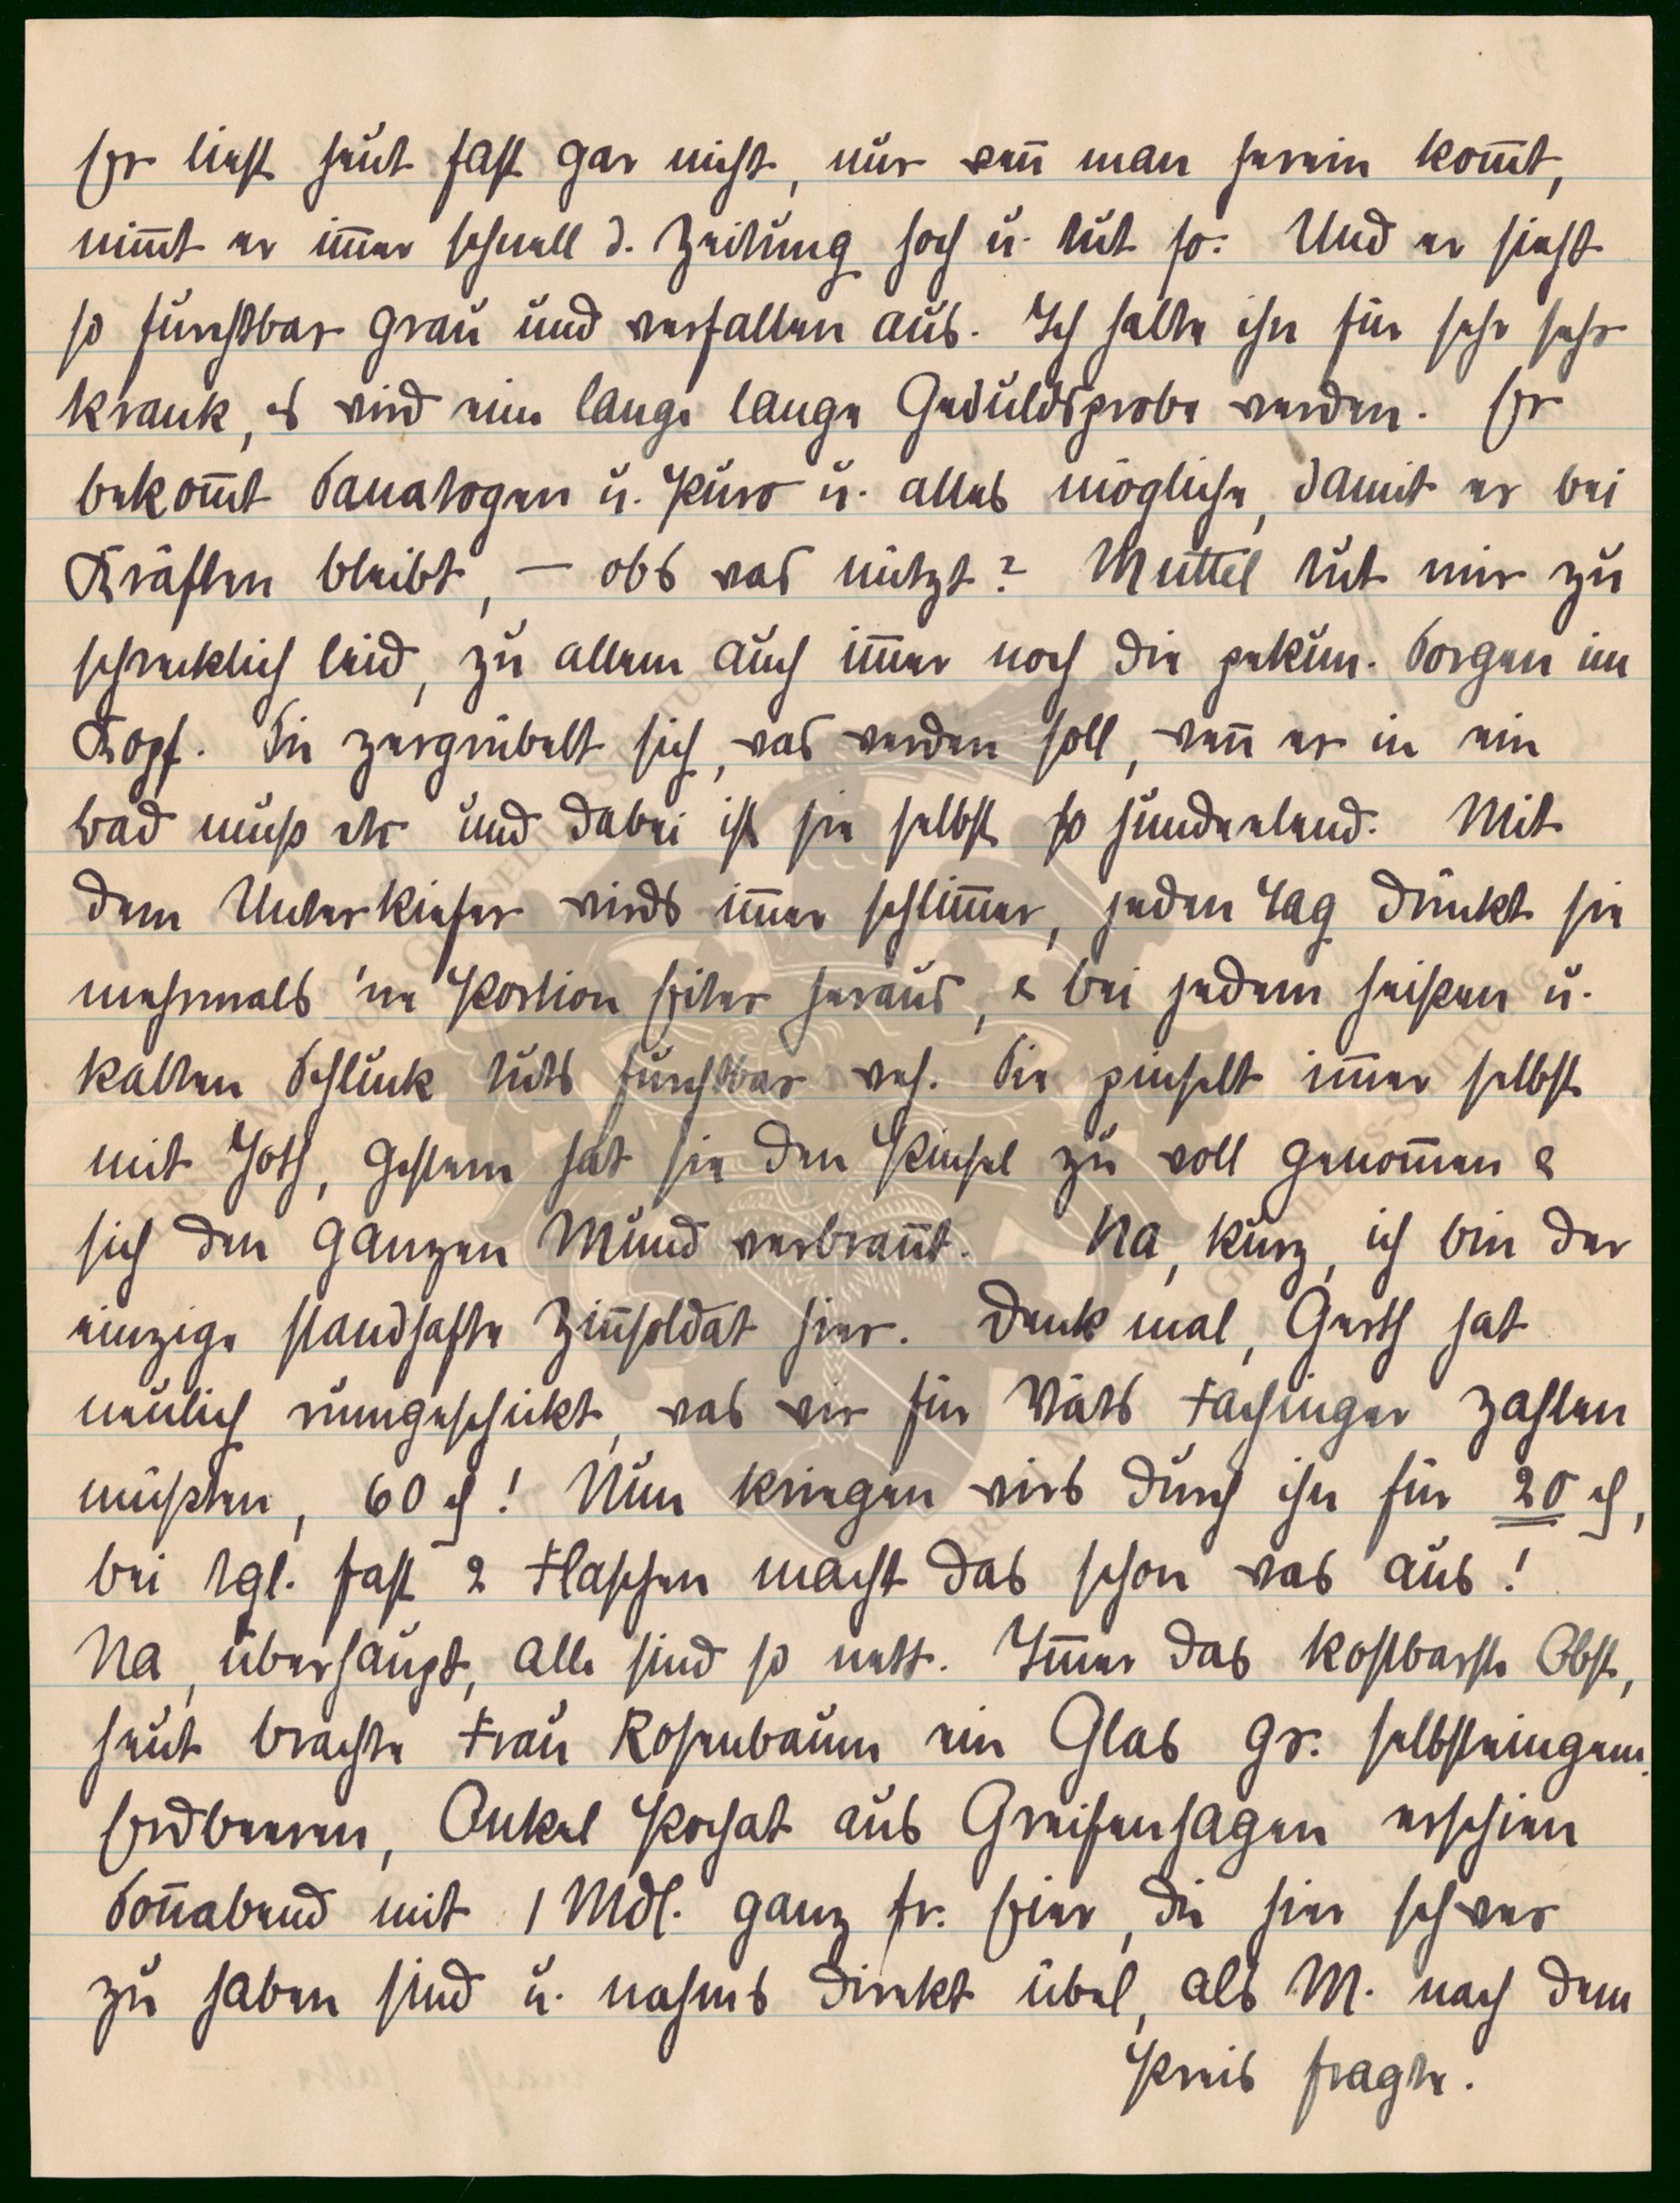 Er liest heut fast gar nicht, nur wen̄ man herein kom̄t,
nim̄t er im̄er schnell d. Zeitung hoch u. tut so. Und er sieht
so furchtbar grau und verfallen aus. Ich halte ihn für sehr sehr
krank, es wird eine lange lange Geduldsprobe werden. Er
bekom̄t Sanatogen u. Puro u. alles mögliche, damit er bei
Kräften bleibt, – obs was nützt? Muttel tut mir zu
schrecklich leid, zu allem auch im̄er noch die pekun. Sorgen im
Kopf. Sie zergrübelt sich, was werden soll, wen̄ er in ein
Bad muß etc und dabei ist sie selbst so hundeelend. Mit
dem Unterkiefer wirds im̄er schlim̄er, jeden Tag drückt sie
mehrmals 'ne Portion Eiter heraus, & bei jedem heißen u.
kalten Schluck tuts furchtbar weh. Sie pinselt im̄er selbst
mit Joth, gestern hat sie den Pinsel zu voll genom̄en &
sich den ganzen Mund verbran̄t. Na, kurz, ich bin der
einzige standhafte Zin̄soldat hier. Denk mal, Gerth hat
neulich rumgeschickt, was wir für Väts Fachinger zahlen
müßten, 60 ₰! Nun kriegen wirs durch ihn für 20 ₰,
bei tgl. fast 2 Flaschen macht das schon was aus!
Na, überhaupt, alle sind so nett. Im̄er das kostbarste Obst,
heut brachte Frau Rosenbaum ein Glas gr. selbsteingem.
Erdbeeren, Onkel Pochat aus Greifenhagen erschien
Son̄abend mit 1 Mdl. ganz fr. Eier, die hier schwer
zu haben sind u. nahms direkt übel, als M. nach dem
Preis fragte.
ERNST MORITZ VON GRUNELIUS-STIFTUNG